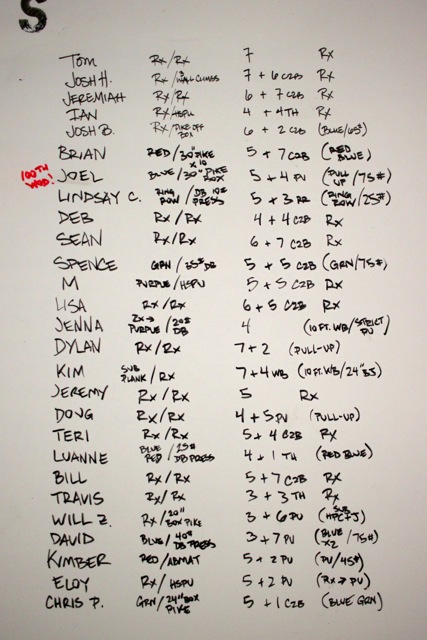 S
Tom Rx/Rx 7 Rx
JOSH H. Rx/WALL CLIMBS 7 + 6 C2B Rx
JEREMIAH Rx/Rx 6 + 7 C2B Rx
IAN Rx/HSPU 4 + 4TH Rx
JOSH B. Rx/PIKE OFF BOX 6 + 2 C2B (BLUE/65#)
BRIAN RED/30" PIKE 5 + 7 C2B (RED BLUE)
100TH WOD! JOEL BLUE/30" PIKE BOX x10 5 + 4 PU (PULL UP/75#)
LINDSAY C. RING ROW/DB 10# PRESS 5 + 3 RR (RING ROW/25#)
DEB Rx/Rx 4 + 4 C2B Rx
SEAN Rx/Rx 6 + 7 C2B Rx
SPENCE GRN/35# DB 5 + 5 C2B (GRN/75#)
M PURPLE/HSPU 5 + 5 C2B Rx
LISA Rx/Rx 6 + 5 C2B Rx
JENNA 2x→ PURPLE/20# DB 4 (10 FT. WB/STRICT PU)
DYLAN Rx/Rx 7 + 2 (PULL-UP)
KIM SUB PLANK/Rx 7 + 4 WB (10 FT. WB/24" BJ)
JEREMY Rx/Rx 5 Rx
DOUG Rx/Rx 4 + 5 PU (PULL-UP)
TERI Rx/Rx 5 + 4 C2B Rx
LUANNE BLUE RED/25# DB PRESS 4 + 1 TH (RED BLUE)
BILL Rx/Rx 5 + 7 C2B Rx
TRAVIS Rx/Rx 3 + 3 TH Rx
WILL Z. Rx/20" BOX PIKE 3 + 6 PU (SUB HPC+J)
DAVID BLUE/40# DB PRESS 3 + 7 PU (BLUE x2/75#)
KIMBER RED/ABMAT 5 + 2 PU (PU/45#)
ELOY Rx/HSPU 5 + 2 PU (Rx→PU)
CHRIS P. GRN/24" BOX PIKE 5 + 1 C2B (BLUE GRN)